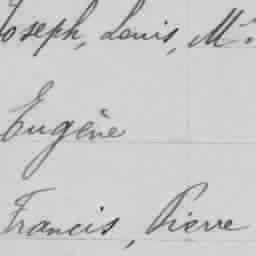 Joseph, Louis, M
Eugène
Francis, Pierre